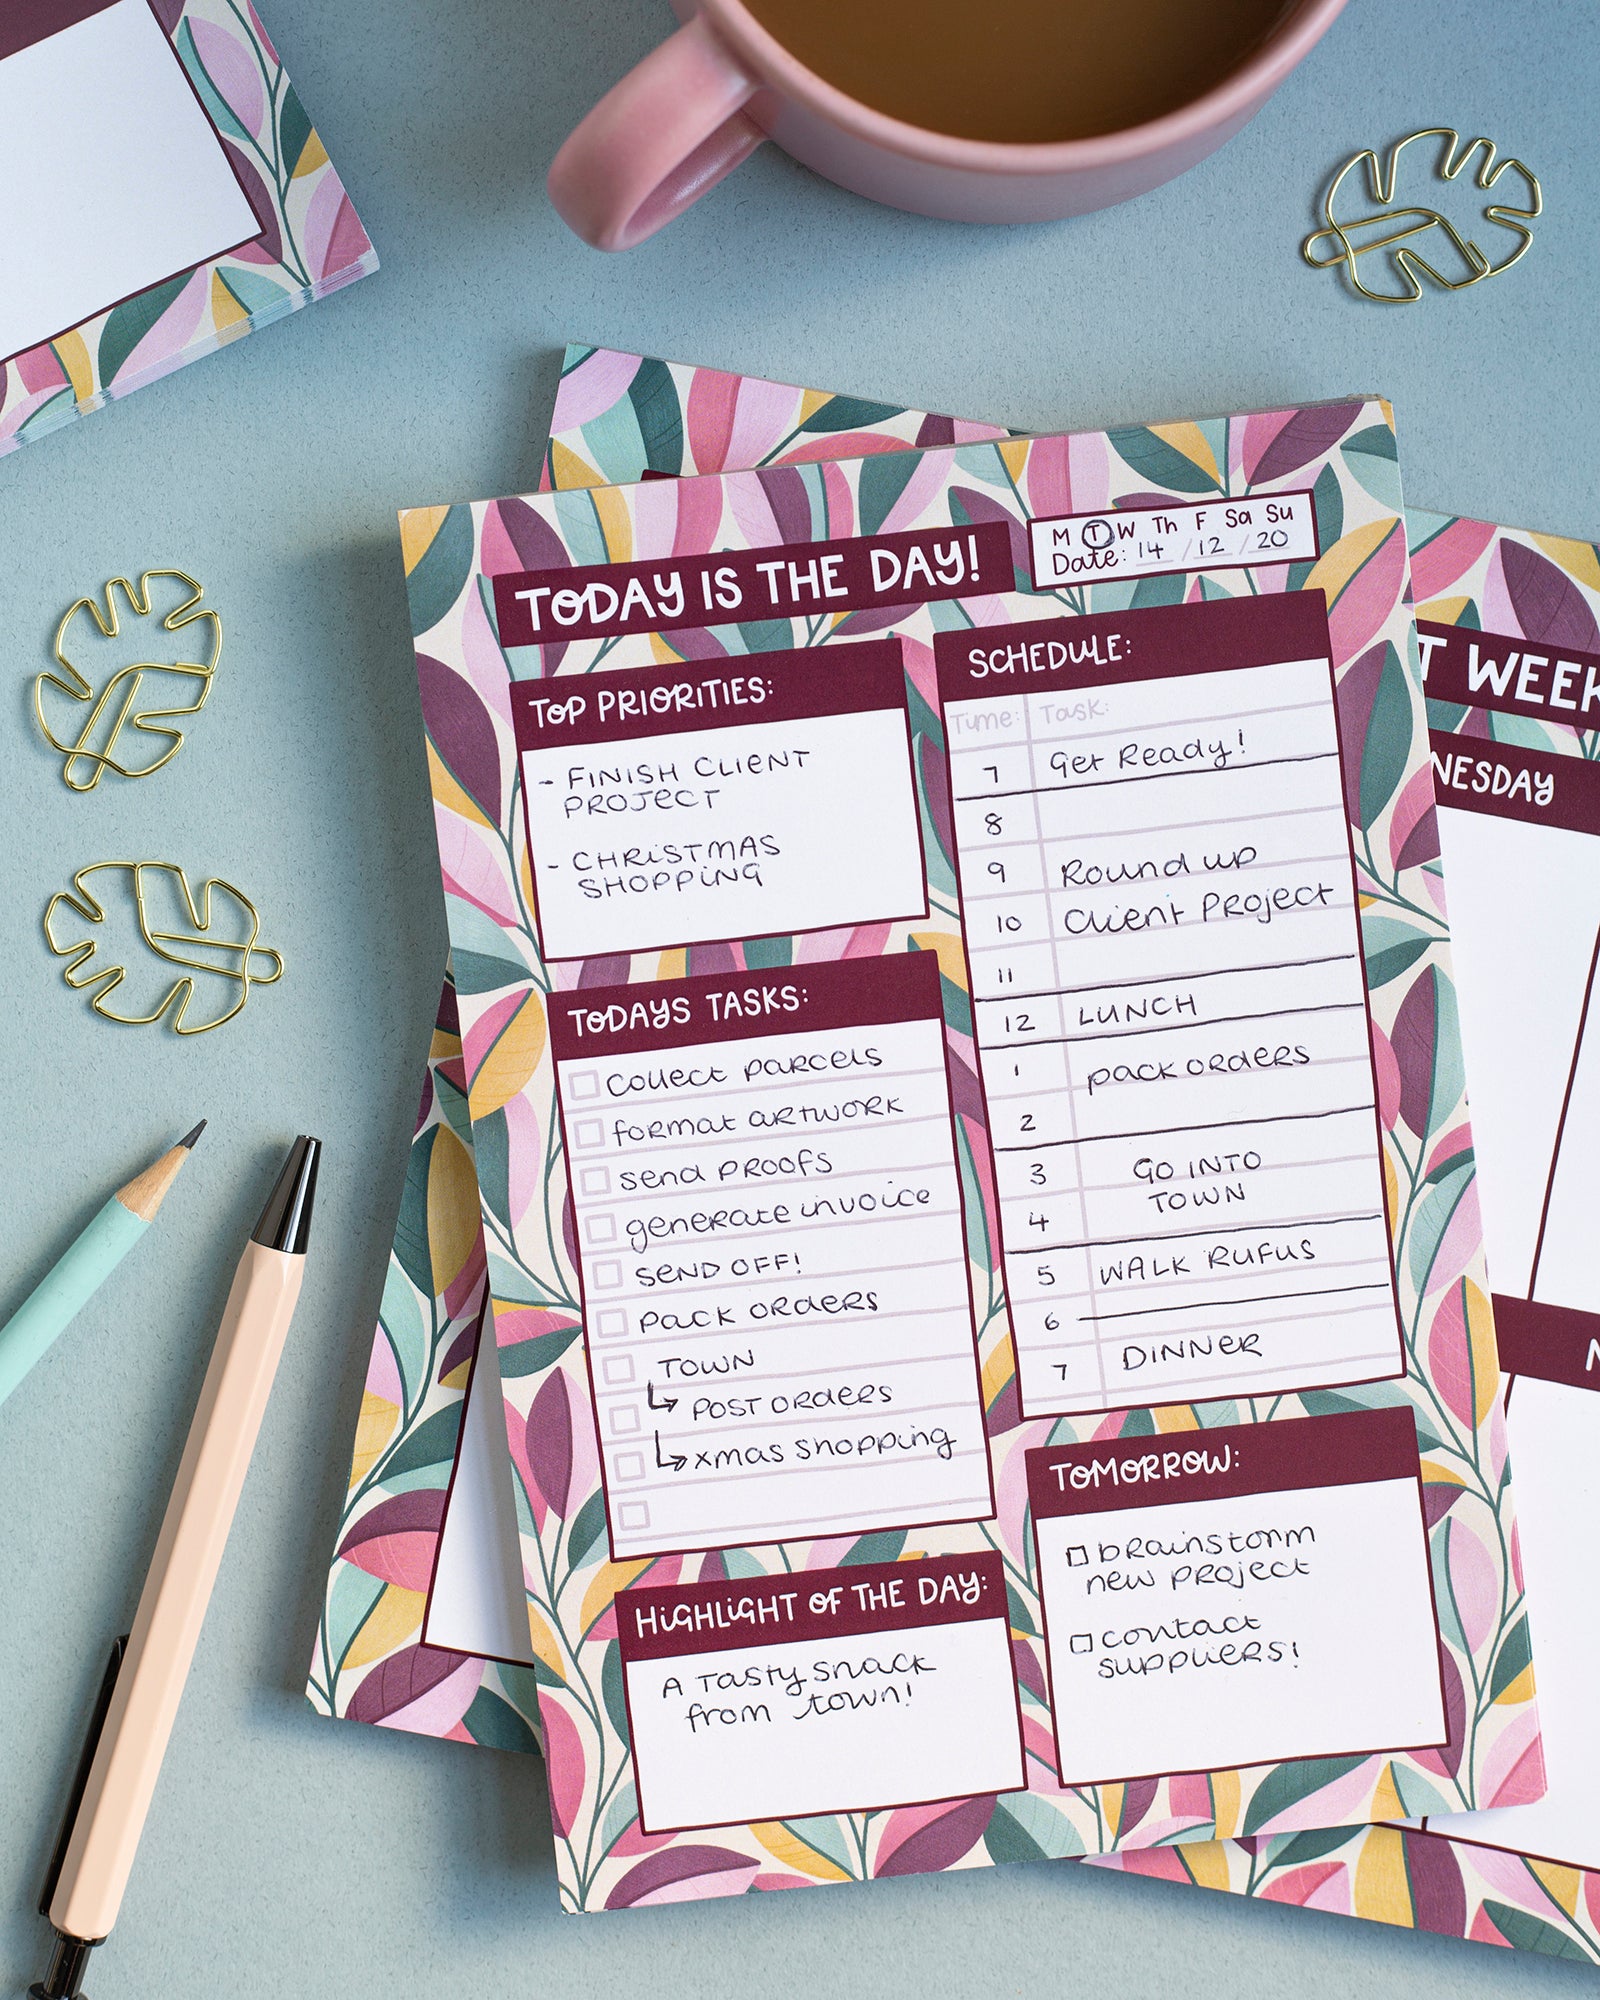 TODAY IS THE DAY!
M T W Th F Sa Su
Date: 14 / 12 / 20
TOP PRIORITIES:
- FINISH CLIENT
PROJECT
- CHRISTMAS
SHOPPING
TODAYS TASKS:
collect parcels
format artwork
send proofs
generate invoice
SEND OFF!
PACK ORDERS
TOWN
↳ POST ORDERS
↳ xmas shopping
HIGHLIGHT OF THE DAY:
A Tasty snack
from town!
SCHEDULE:
Time: Task:
7 Get Ready!
8
9 Round up
10 Client Project
11
12 LUNCH
1 pack orders
2
3 GO INTO
4 TOWN
5 WALK RUFUS
6
7 DINNER
TOMORROW:
brainstorm
new project
contact
suppliers!
T WEEK
NESDAY